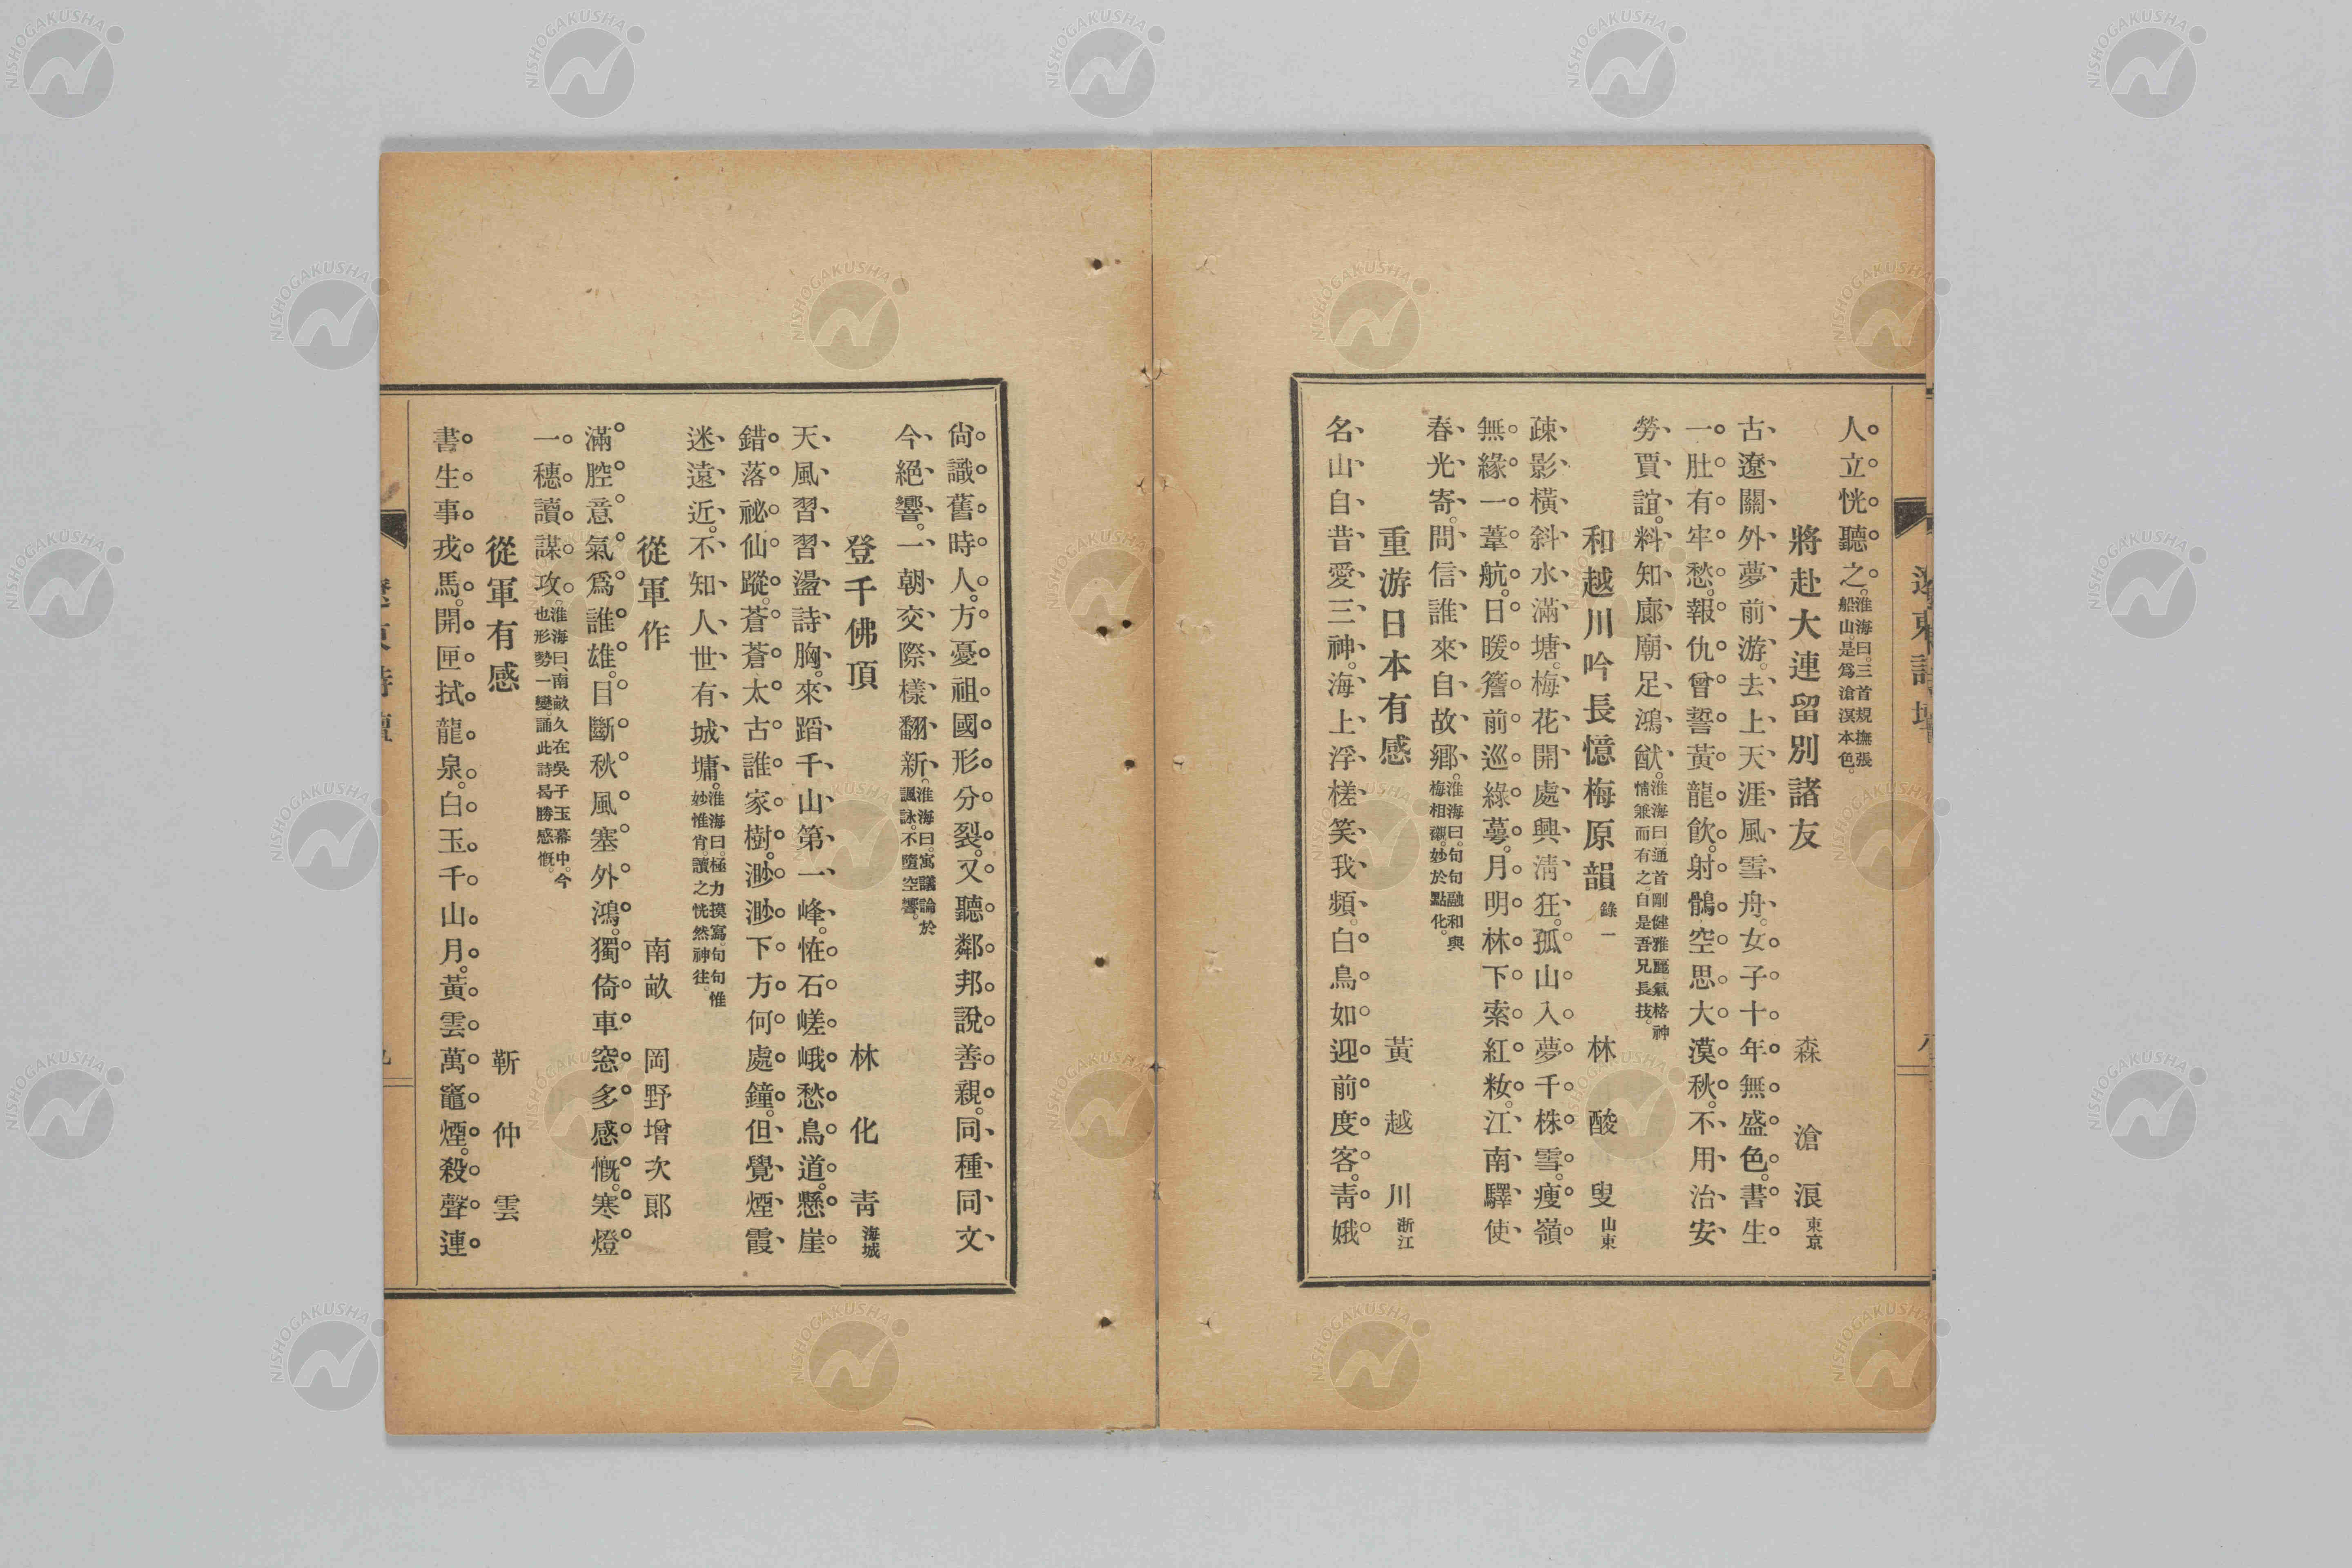 人立恍聽之。淮海曰。三首規撫張船山。是爲滄溟本色。
將赴大連留別諸友 森滄浪 東京
古遼關外夢前游。去上天涯風雪舟。女子十年無盛色。書生
一肚有牢愁。報仇曾誓黃龍飮。射鶻空思大漠秋。不用治安
勞賈誼。料知廊廟足鴻猷。淮海曰。通首剛健雅麗。氣格神情兼而有之。自是吾兄長技。
和越川吟長憶梅原韻 錄一 林酸叟 山東
疎影橫斜水滿塘。梅花開處興淸狂。孤山入夢千株雪。瘦嶺
無緣一葦航。日暖簷前巡綠蕚。月明林下索紅妝。江南驛使
春光寄。問信誰來自故鄉。淮海曰。句句融和與梅相襯。妙於點化。
重游日本有感 黃越川 浙江
名山自昔愛三神。海上浮槎笑我頻。白鳥如迎前度客。靑娥
尙識舊時人。方憂祖國形分裂。又聽鄰邦說善親。同種同文
今絕響。一朝交際樣翻新。淮海曰。寓議論於諷詠。不墮空響。
登千佛頂 林化靑 海城
天風習習盪詩胸。來蹈千山第一峰。恠石嵯峨愁鳥道。懸崖
錯落祕仙蹤。蒼蒼太古誰家樹。渺渺下方何處鐘。但覺煙霞
迷遠近。不知人世有城墉。淮海曰。極力摸寫。句句惟妙惟肖。讀之恍然神往。
從軍作 南畝 岡野增次郎
滿腔意氣爲誰雄。目斷秋風塞外鴻。獨倚車窓多感慨。寒燈
一穗讀謀攻。淮海曰、南畝久在吳子玉幕中。今也形勢一變。誦此詩曷勝感慨。
從軍有感 靳仲雲
書生事戎馬。開匣拭龍泉。白玉千山月。黃雲萬竈煙。殺聲連